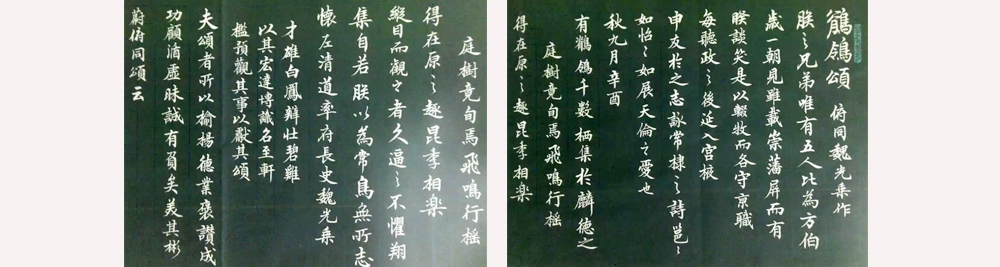 鶺鴒頌 俯同魏光乗作
朕之兄弟唯有五人比為方伯
歳一朝見雖載崇藩屏而有
睽談笑是以輟牧而各守京職
每聽政之後延入宮掖
申友於之志詠常棣之詩邕々
如怡々如展天倫之愛也
秋九月辛酉
有鶺鴒千数栖集於麟德之
庭樹竟旬焉飛鳴行摇
得在原之趣昆季相楽
庭樹竟旬焉飛鳴行摇
得在原之趣昆季相楽
縱目而觀之者久逼之不懼翔
集自若朕以為常鳥無所志
懐左清道率府長史魏光乗
才雄白鳳辯壮碧雞
以其宏達博識名至軒
檻預觀其事以獻其頌
夫頌者所以揄揚德業褒讃成
功顧循虛昧誠有負矣美其彬
蔚俯同頌云